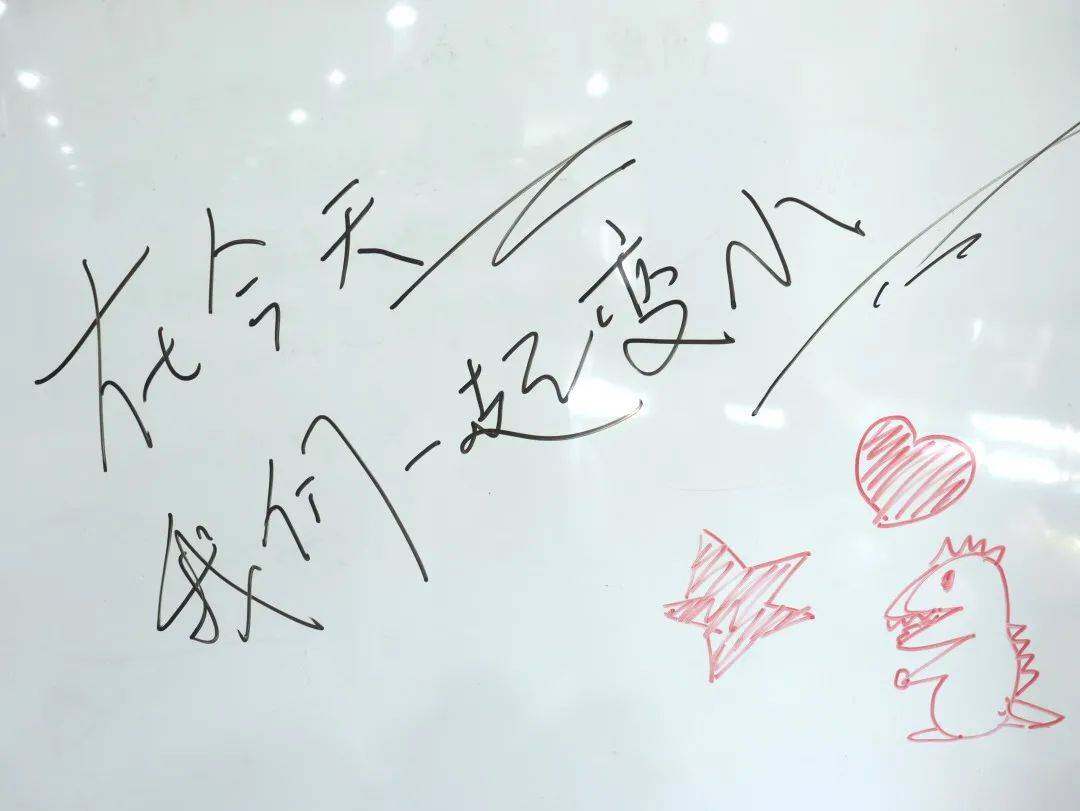 在今天
我们一起变小